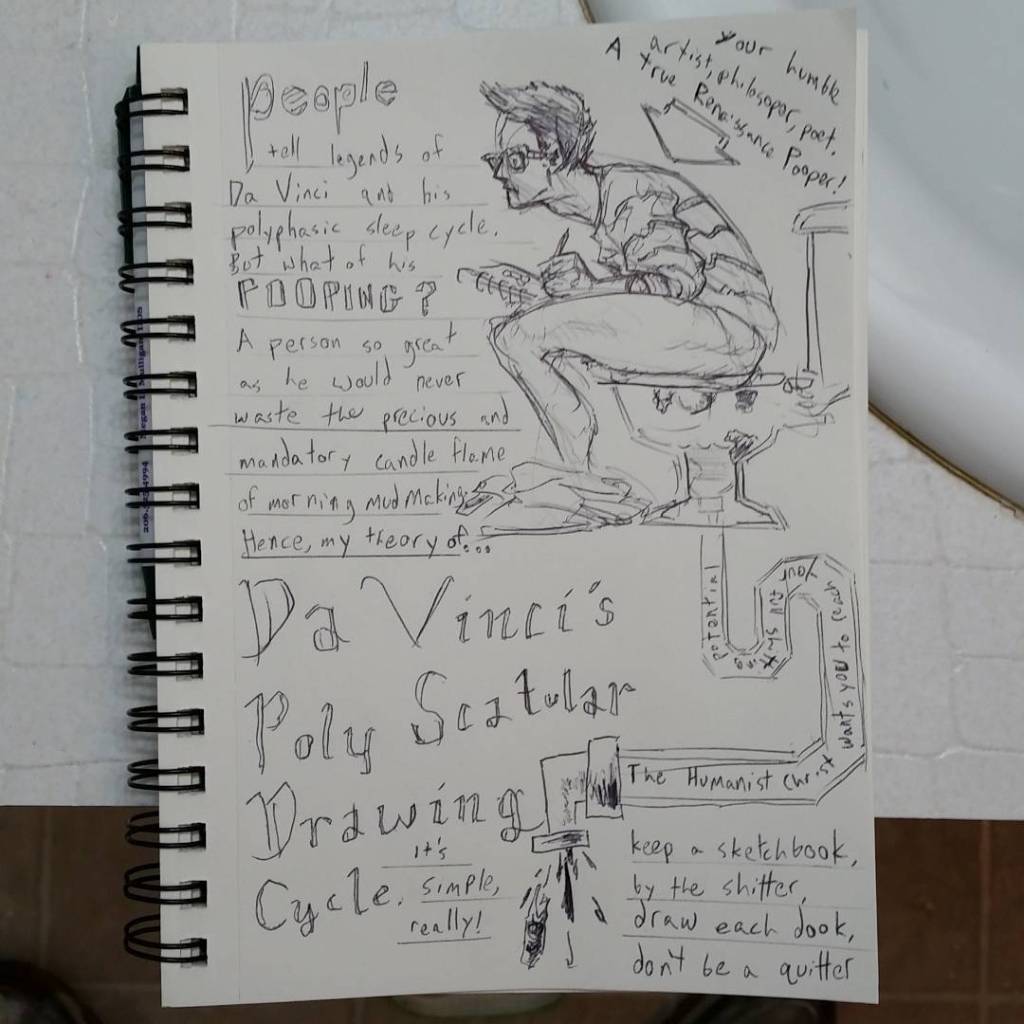 People
tell legends of
Da Vinci and his
polyphasic sleep cycle.
But what of his
POOPING?
A person so great
as he would never
waste the precious and
mandatory candle flame
of morning mud making.
Hence, my theory of...
Your humble
A artist, philosoper, poet.
true Renaissance Pooper!
Da Vinci's
Poly Scatular
Drawing
Cycle.
it's
simple,
really!
The Humanist Christ
wants you to reach
your
potential
keep a sketchbook,
by the shitter,
draw each dook,
don't be a quitter